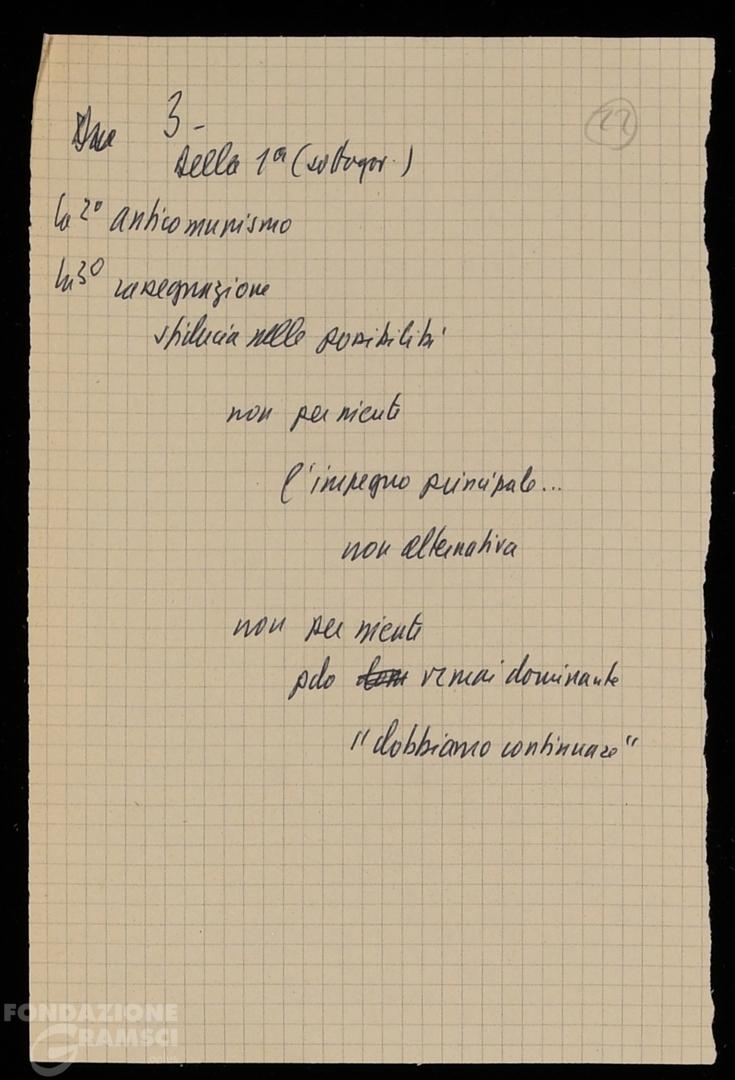 3 -
della 1ª (sottogov.)
22
la 2º anticomunismo
la 3º rassegnazione
sfiducia nelle possibilità
non per niente
l'impegno principale...
non alternativa
non per niente
pdo dominante
"dobbiamo continuare"
FONDAZIONE
GRAMSCI